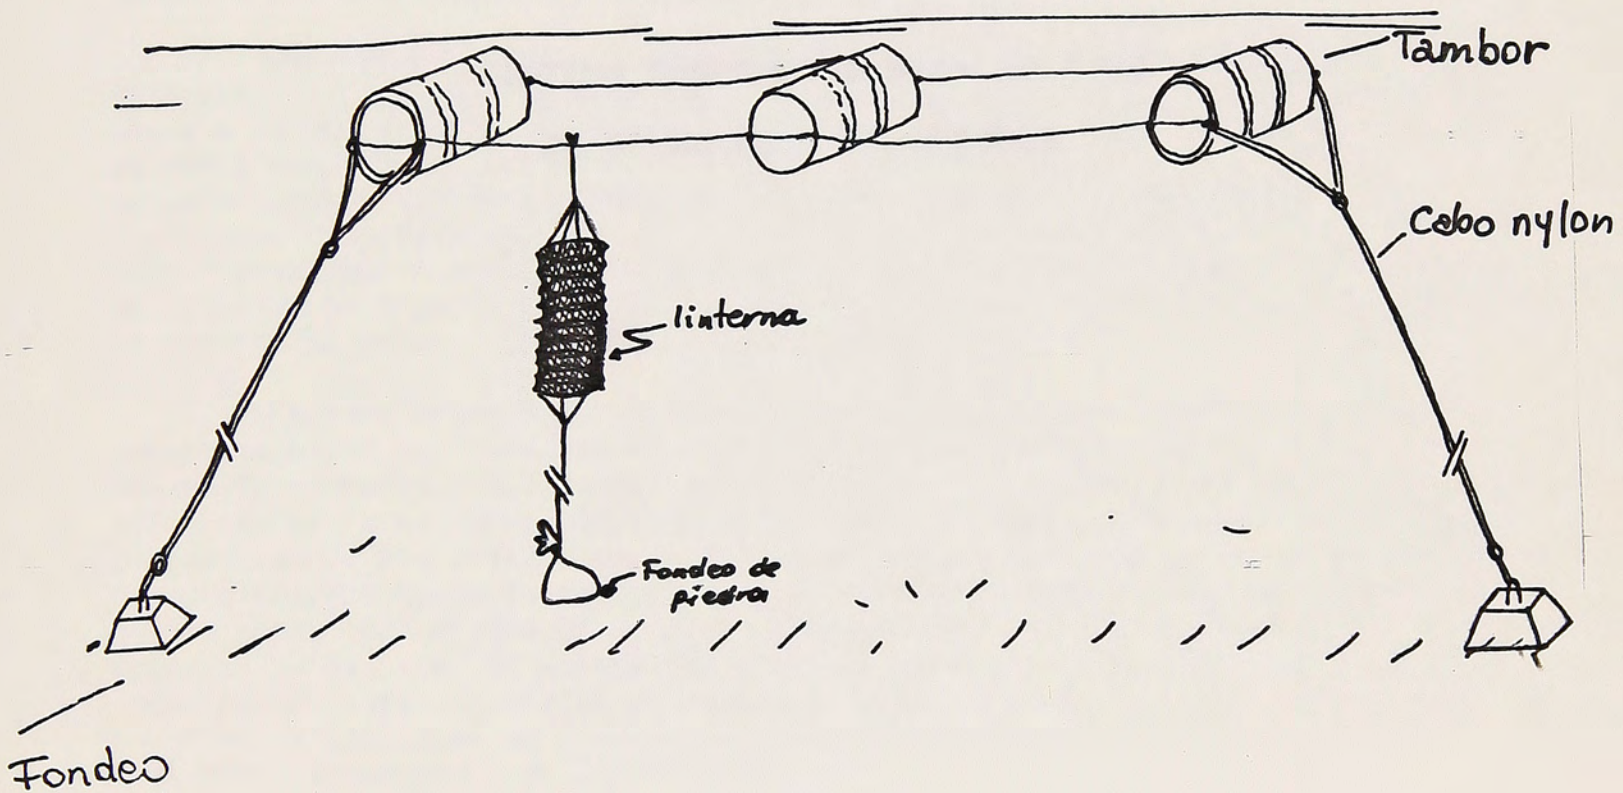 Tambor
Cabo nylon
linterna
Fondeo de
piedra
Fondeo